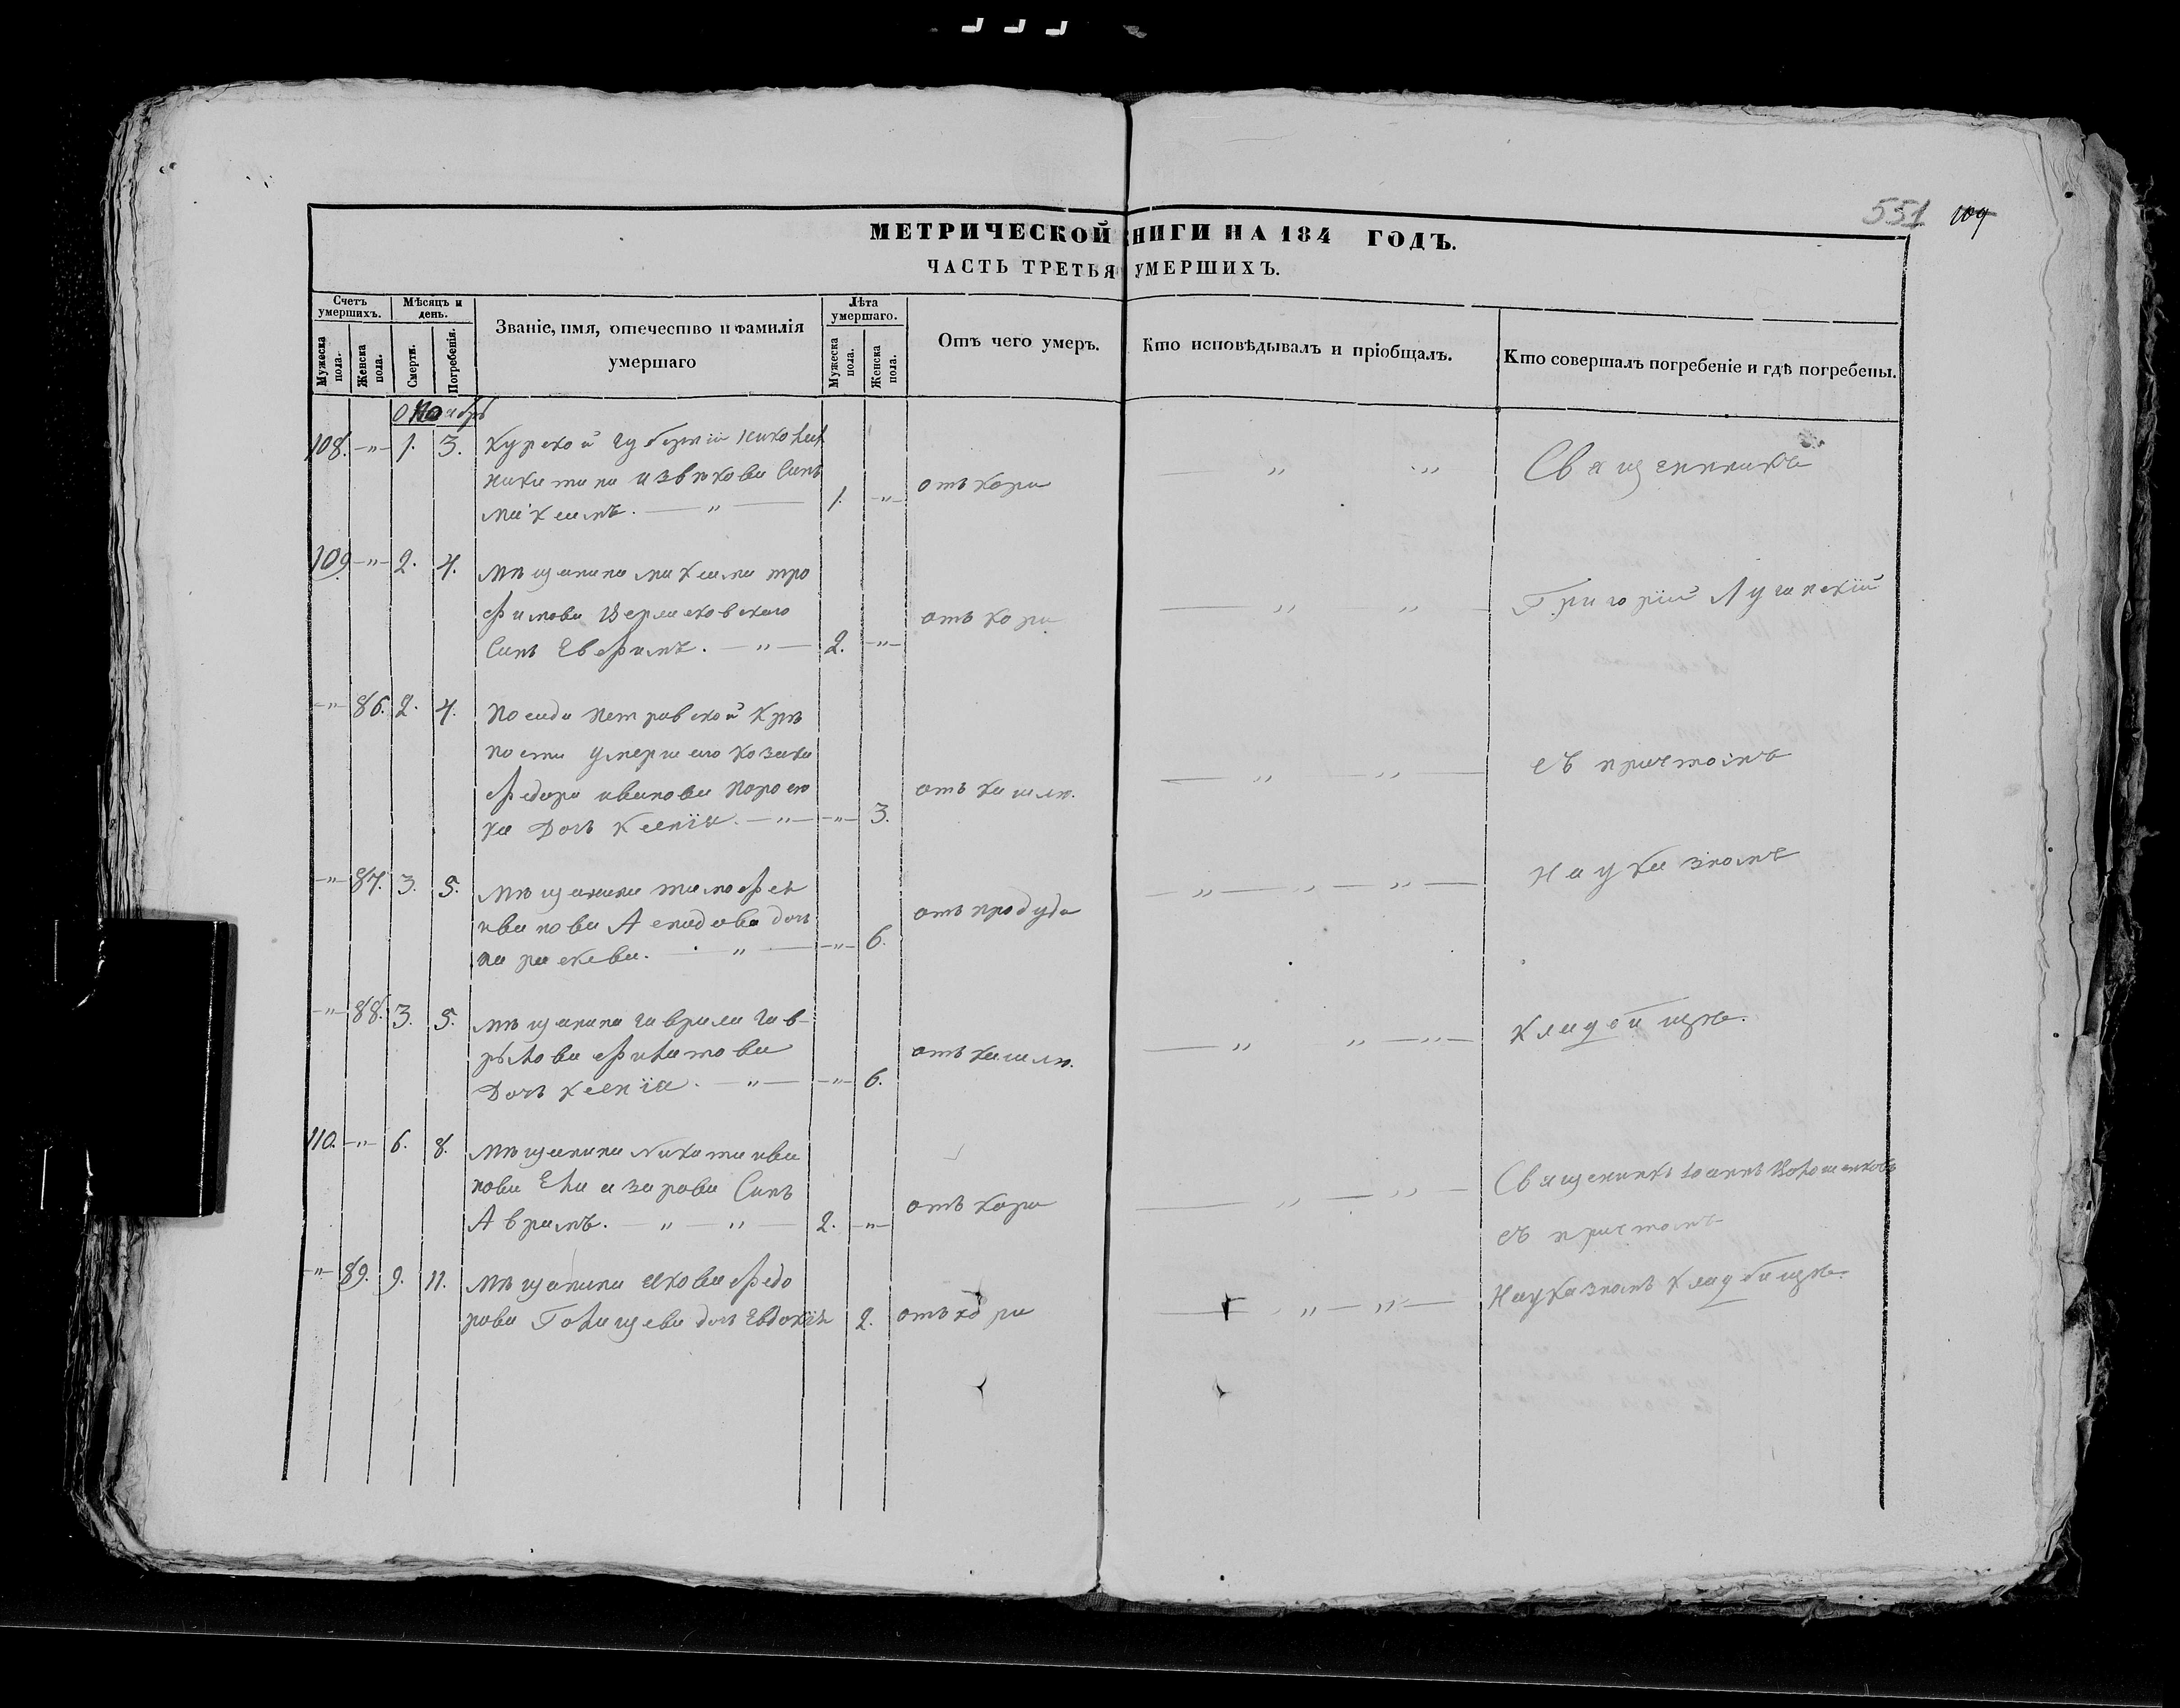 551 109
МЕТРИЧЕСКОЙ КНИГИ НА 184 ГОДЪ.
ЧАСТЬ ТРЕТЬЯ УМЕРШИХЪ.
Счетъ умершихъ.
Мужеска пола.
Женска пола.
Мѣсяцъ и день.
Смерти.
Погребенія.
Званіе, имя, отечество и фамилія
умершаго
Лѣта умершаго.
Мужеска пола.
Женска пола.
Отъ чего умеръ.
Кто исповѣдывалъ и пріобщалъ.
Кто совершалъ погребеніе и гдѣ погребены.
108. -"- 1. 3. Курской губерніи николая
никитина сынъ
максимъ. - " - 1. -"- отъ кори
Священникъ
109. -"- 2. 4. мѣщанина максима тро
фимова
Сынъ Евфимъ. - " - 2. -"- отъ кори
Григорій Луганскій
-"- 86. 2. 4. посада петровской крѣ
пости умершаго козака
федора иванова
ка Дочь Ксенія. - " - -"- 3. отъ кашлю.
съ причтомъ
-"- 87. 3. 5. мѣщанина тимофея
иванова дочь
параскева. - " - -"- 6. отъ
На указномъ
-"- 88. 3. 5. мѣщанина гаврила гав-
рылова филатова
Дочь Ксенія. - " - -"- 6. отъ кашлю.
кладбищѣ.
110. -"- 6. 8. мѣщанина Никиты ива
нова Елиазарова Сынъ
Аврамъ. - " - " - 2. -"- отъ кори
Священникъ Іоаннъ
съ причтомъ
-"- 89. 9. 11. мѣщанина якова федо
рова Голищева дочь Евдокія 2. отъ кори
На указномъ кладбищѣ.